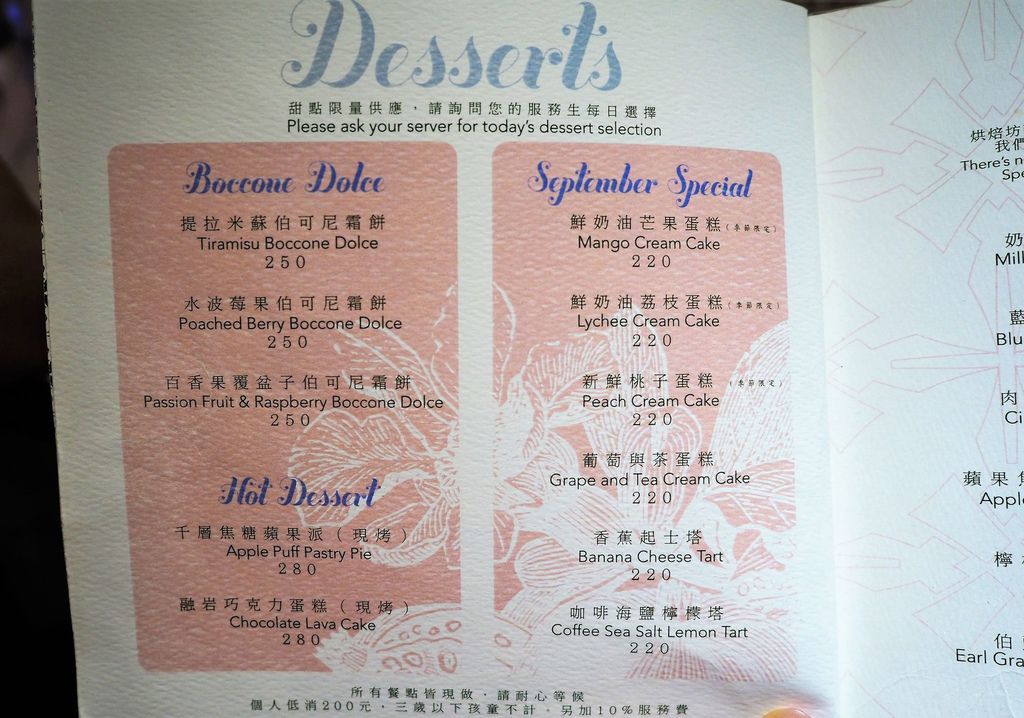 Desserts
甜點限量供應，請詢問您的服務生每日選擇
Please ask your server for today's dessert selection
Boccone Dolce
提拉米蘇伯可尼霜餅
Tiramisu Boccone Dolce
250
水波莓果伯可尼霜餅
Poached Berry Boccone Dolce
250
百香果覆盆子伯可尼霜餅
Passion Fruit & Raspberry Boccone Dolce
250
Hot Dessert
千層焦糖蘋果派（現烤）
Apple Puff Pastry Pie
280
融岩巧克力蛋糕（現烤）
Chocolate Lava Cake
280
September Special
鮮奶油芒果蛋糕（季節限定）
Mango Cream Cake
220
鮮奶油荔枝蛋糕（季節限定）
Lychee Cream Cake
220
新鮮桃子蛋糕（季節限定）
Peach Cream Cake
220
葡萄與茶蛋糕
Grape and Tea Cream Cake
220
香蕉起士塔
Banana Cheese Tart
220
咖啡海鹽檸檬塔
Coffee Sea Salt Lemon Tart
220
所有餐點皆現做，請耐心等候
個人低消200元，三歲以下孩童不計。另加10%服務費
烘焙坊
我們
There's n
Spe
奶
Mil
藍
Blu
肉
Ci
蘋果焦
Apple
檸
伯
Earl Gra